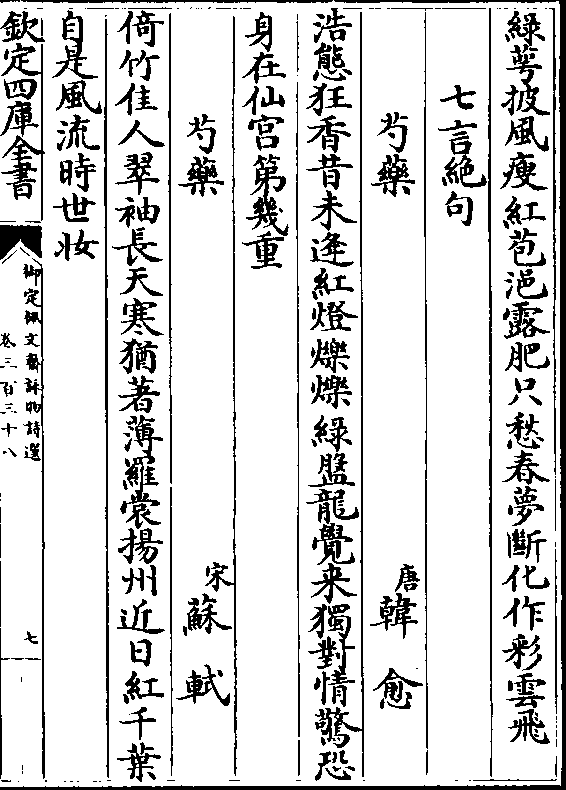 綠萼披風瘦紅苞浥露肥只愁春夢斷化作彩雲飛
七言絶句
芍藥 唐 韓愈
浩態狂香昔未逢紅燈爍爍綠盤龍覺来獨對情驚恐
身在仙宫第幾重
芍藥 宋 蘇軾
倚竹佳人翠袖長天寒猶著薄羅裳揚州近日紅千葉
自是風流時世妝
欽定四庫全書
御定佩文齋詠物詩選
卷三百三十八
七